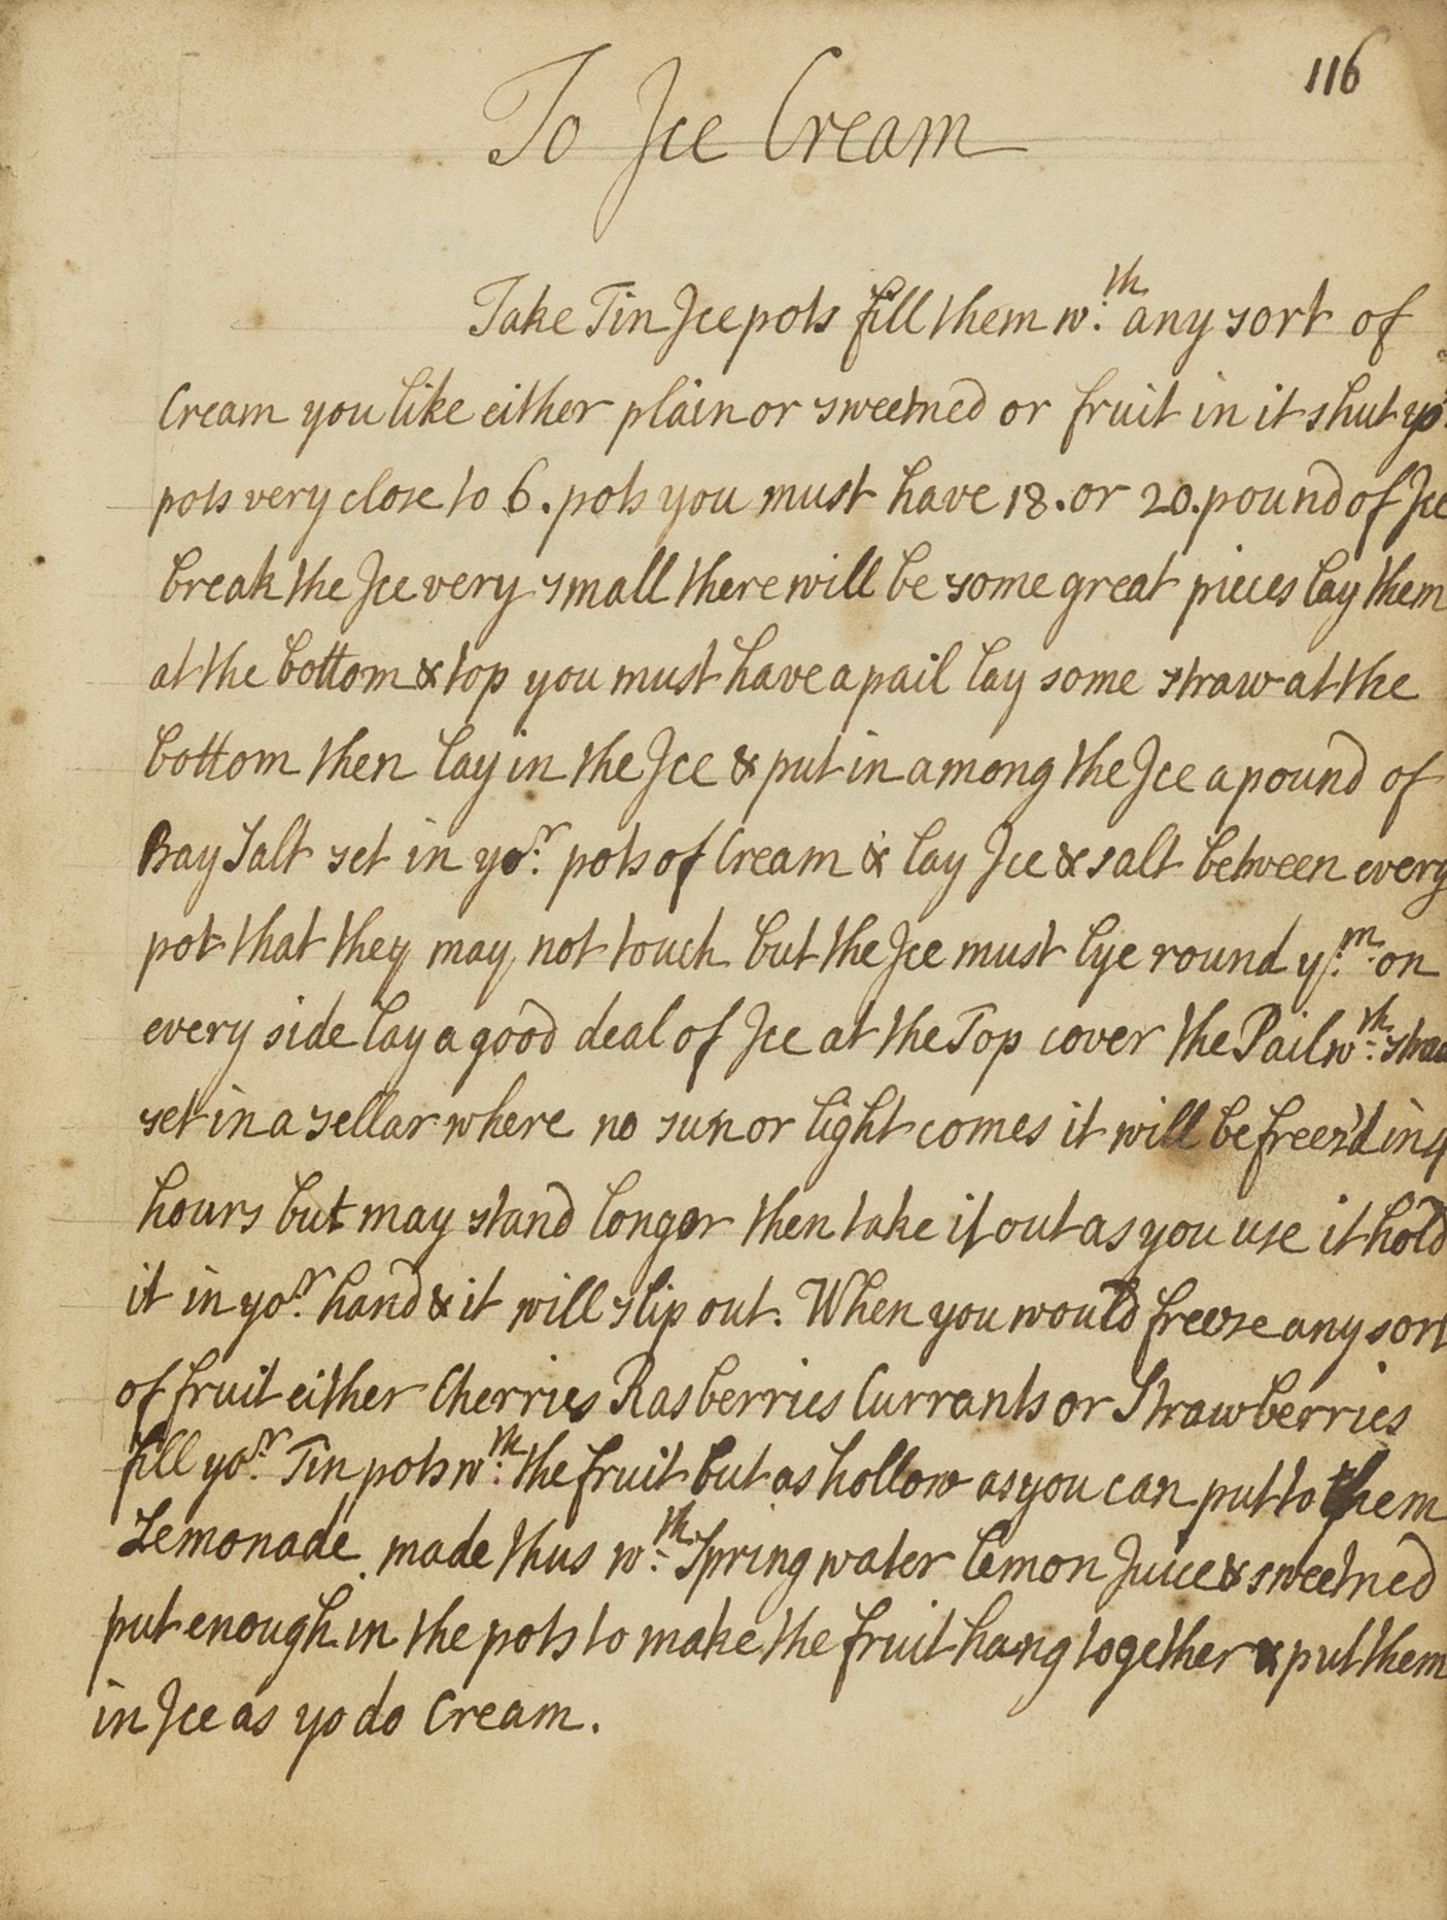 116
To Ice Cream
Take Tin Ice pots fill them w.th any sort of
Cream you like either plain or sweetned or fruit in it shut yo.
pots very close to 6. pots you must have 18. or 20. pound of Ice
break the Ice very small there will be some great pieces lay them
at the bottom & top you must have a pail lay some straw at the
bottom then lay in the Ice & put in among the Ice a pound of
Bay Salt set in yo.r pots of Cream & lay Ice & salt between every
pot that they may not touch but the Ice must lye round y.m on
every side lay a good deal of Ice at the Top cover the Pail w.th straw
set in a sellar where no sun or light comes it will be freez'd in 4
hours but may stand longer then take it out as you use it hold
it in yo.r hand & it will slip out. When you would freeze any sort
of fruit either Cherries Rasberries Currants or Strawberries
fill yo.r Tin pots w.th the fruit but as hollow as you can put to them
Lemonade made thus w.th Spring water lemon Juice & sweetned
put enough in the pots to make the fruit hang together & put them
in Ice as yo do Cream.